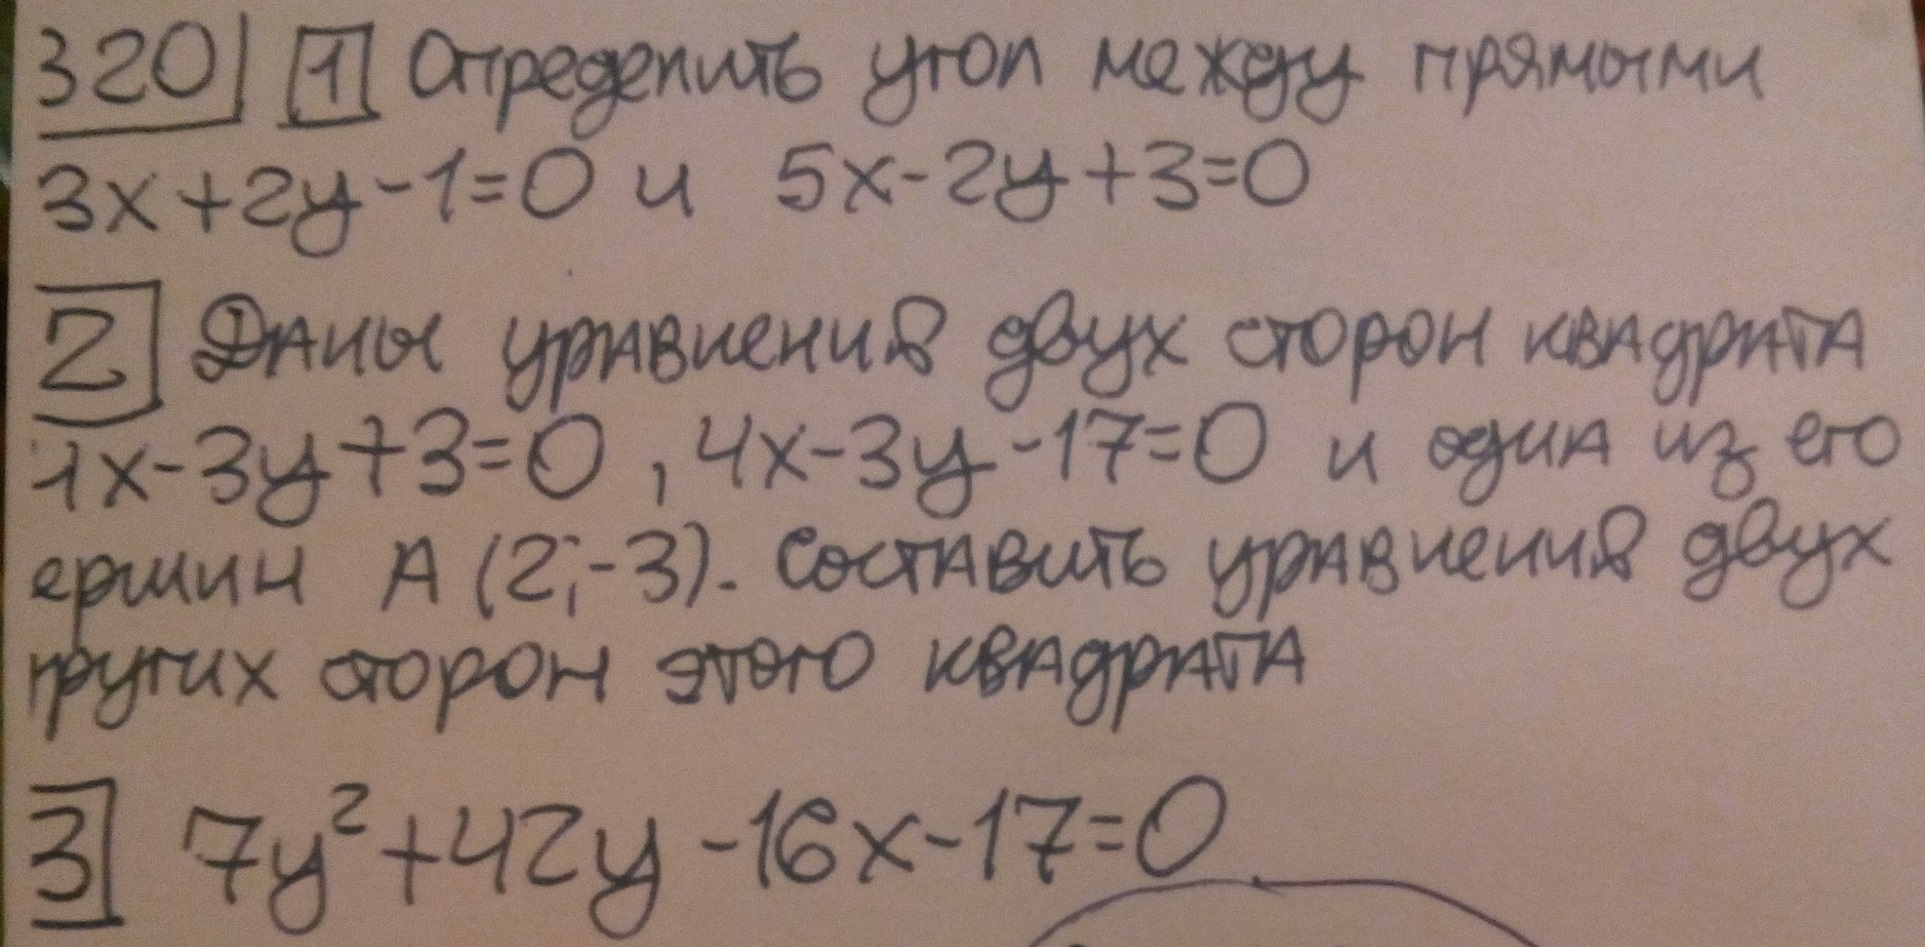 320 1 Определить угол между прямыми
3x+2y-1=0 и 5x-2y+3=0
2 Даны уравнения двух сторон квадрата
4x-3y+3=0, 4x-3y-17=0 и одна из его
ершин A (2;-3). Составить уравнения двух
других сторон этого квадрата
3 7y²+42y-16x-17=0